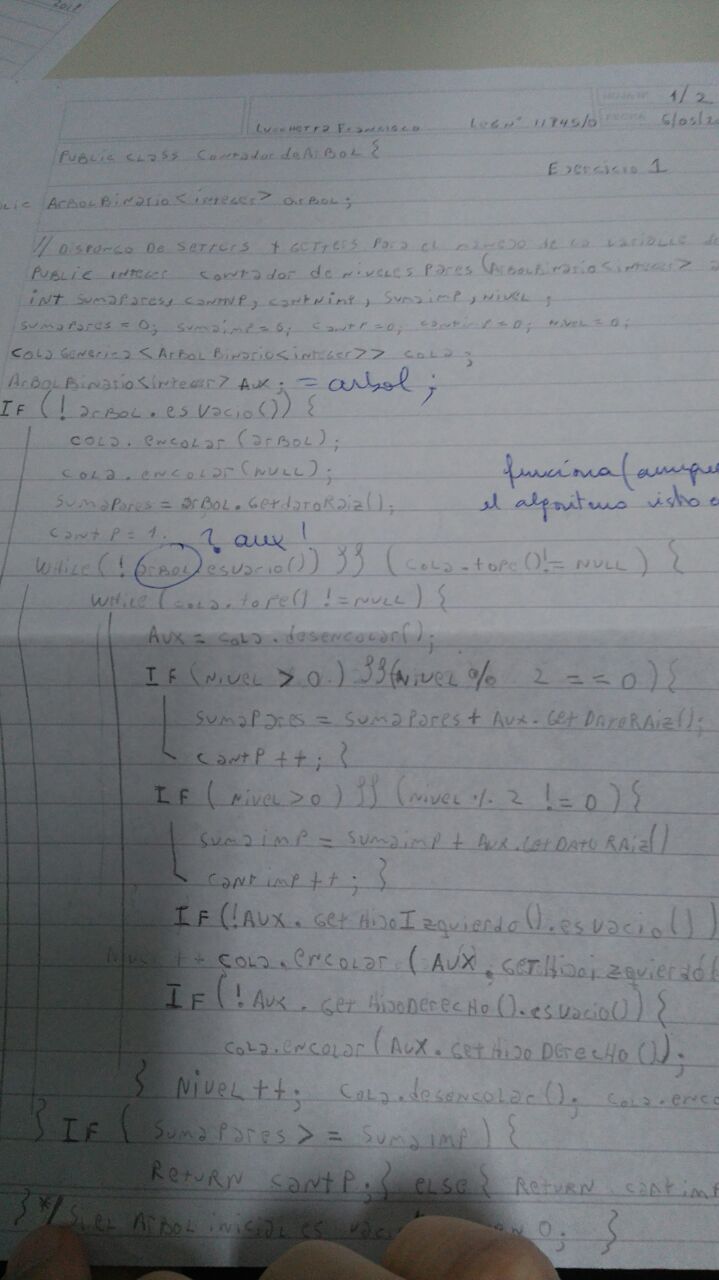 2018
1/2
Lucchetta Francisco Leg N° 11845/0 FECHA 6/05/20
PUBLIC CLASS Contador de ArBoL {
Ejercicio 1
blic ArBolBinario<integer> arBol;
// Dispongo De setters + Getters Para el manejo de la variable de
PUBLIC integer contador de niveles Pares (ArBolBinario<integer> a
int sumaPares, contNP, contNimp, sumaimp, nivel;
sumaPares = 0; sumaimp = 0; cantP = 0; cantimP = 0; nivel = 0;
cola Generica <ArBol Binario<integer>> cola;
ArBolBinario<integer> Aux; = arbol;
IF (! arBol.esVacio()) {
cola.encolar(arBol);
cola.encolar(NULL);
funciona (aunque
sumaPares = arBol.GetdatoRaiz();
el algoritmo visto
cantP = 1.
? aux!
While (! arBol.esvacio()) }} (cola.tope() != NULL) {
While (cola.tope() != NULL) {
AUX = cola.desencolar();
IF (Nivel > 0) }} (Nivel % 2 == 0) {
sumaPares = sumaPares + Aux.GetDatoRaiz();
cantP ++; }
IF (Nivel > 0) }} (nivel % 2 != 0) {
sumaimP = sumaimP + Aux.GetDatoRaiz()
cantimp ++; }
IF (!AUX.GetHijoIzquierdo().esvacio())
cola.encolar (AUX.GetHijoizquierdo(
IF (! Aux.GetHijoDerecHo().esVacio()) {
cola.encolar (AUX.GetHijoDerecHo());
} Nivel ++; cola.desencolar(); cola.enco
} IF (sumaPares >= sumaimp) {
Return cantP; } else { Return cantimp
} */ Si el ArBol inicial es vaci 0; }